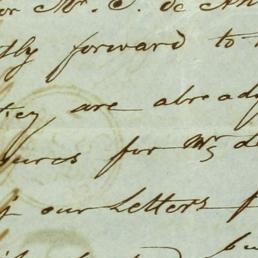 or Mr. C. de
tly forward to
are already
ures for Mrs
f our Letters f